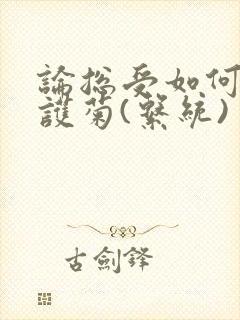 論總受如何
護菊(繫統)
古劍鋒